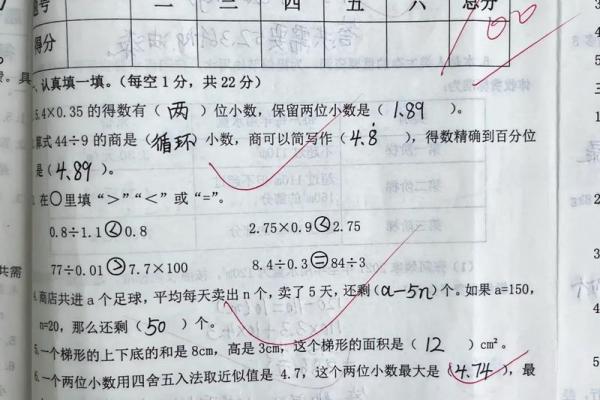 题号 一 二 三 四 五 六 总分
得分
100
一、认真填一填。(每空1分,共22分)
1.5.4×0.35的得数有(两)位小数,保留两位小数是(1.89)。
2.算式44÷9的商是(循环)小数,商可以简写作(4.8̇),得数精确到百分位
是(4.89)。
3.在○里填“>”“<”或“=”。
0.8÷1.1<0.8 2.75×0.9<2.75
77÷0.01>7.7×100 8.4÷0.3=84÷3
4.商店共进a个足球,平均每天卖出n个,卖了5天,还剩(a-5n)个。如果a=150,
n=20,那么还剩(50)个。
5.一个梯形的上下底的和是8cm,高是3cm,这个梯形的面积是(12)cm²。
6.一个两位小数用四舍五入法取近似值是4.7,这个两位小数最大是(4.74),最
共需